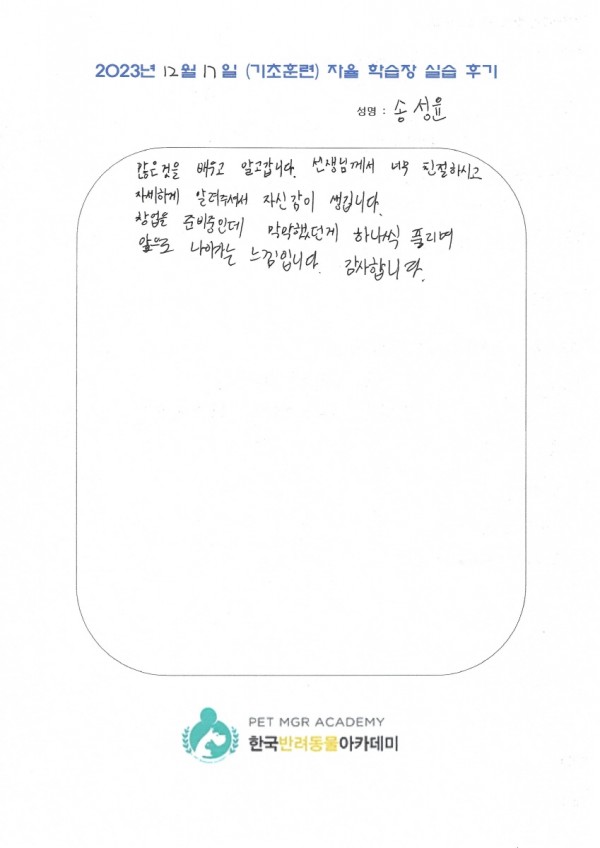 2023년 12월 17일 (기초훈련) 자율 학습장 실습 후기
성명 : 송성윤
많은것을 배우고 알고갑니다. 선생님께서 너무 친절하시고
자세하게 알려주셔서 자신감이 생깁니다.
창업을 준비중인데 막막했던게 하나씩 풀리며
앞으로 나아가는 느낌입니다. 감사합니다.
PET MGR ACADEMY
한국반려동물아카데미